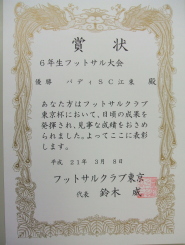 賞状
6年生フットサル大会
優勝 バディSC江東 殿
あなた方はフットサルクラブ
東京杯において、日頃の成果を
発揮され、見事な成績をおさめ
られました。よってここに表彰
します。
平成21年3月8日
フットサルクラブ東京
代表 鈴木 威